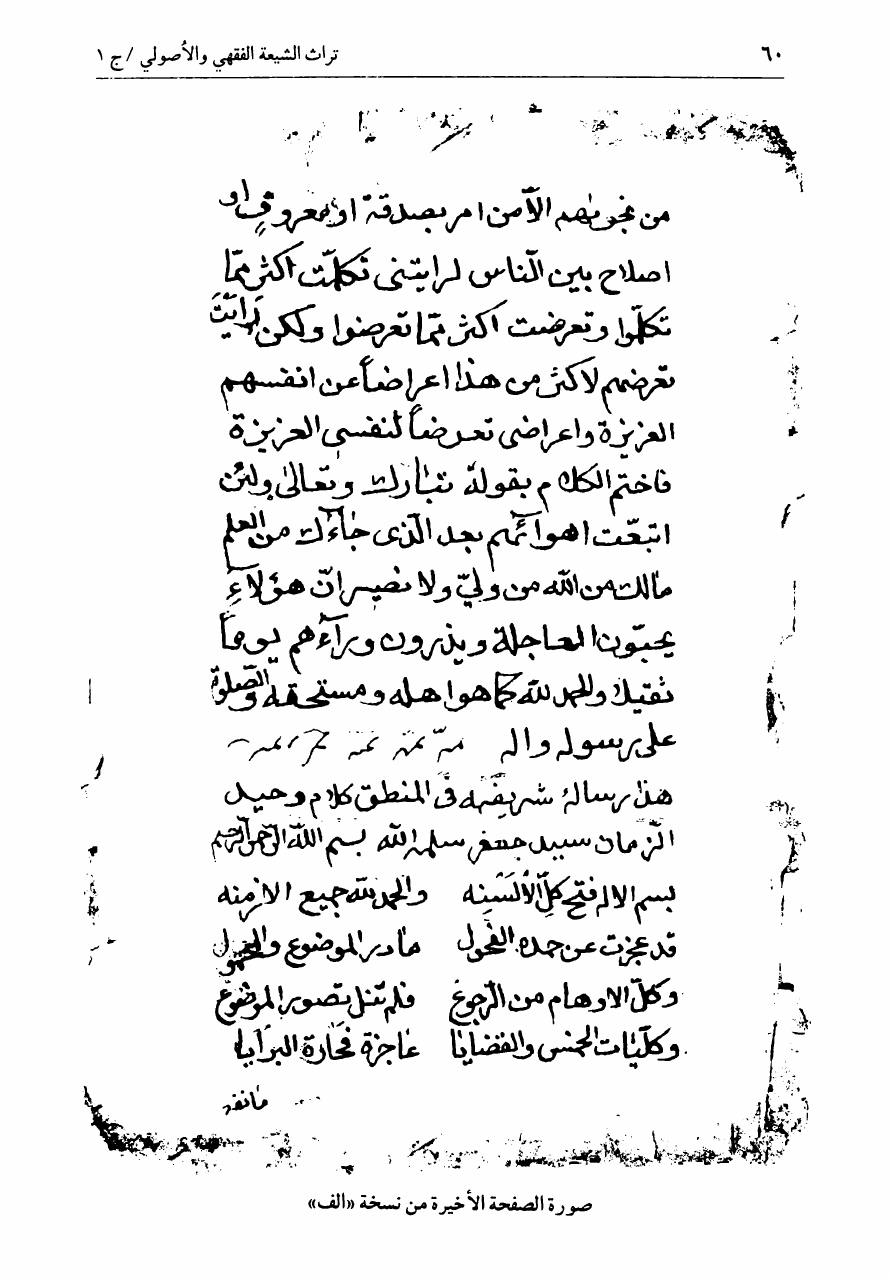 ٦٠
تراث الشيعة الفقهي والأصولي / ج ١
من نجويٰهم الّا من امر بصدقة او معروف او
اصلاح بين الناس لرايتنى تكلّمت اكثر ممّا
تكلّموا وتعرضت اكثر ممّا تعرضوا ولكن رايت
تعرضهم لاكثر من هذا اعراضاً عن انفسهم
العزيزة واعراضى تعرضاً لنفسى العزيزة
فاختم الكلام بقوله تبارك وتعالى ولئن
اتبعّت اهوائهم بعد الّذى جاءك من العلم
مالك من الله من ولىّ ولا نصير انّ هؤلاء
يحبّون العاجلة ويذرون وراءهم يوماً
ثقيلا والحمد لله كما هو اهله ومستحقه والصّلوة
على رسوله واله
هذا رسالۀ شريفه فى المنطق كلام وحيد
الزّمان سيد جعفر سلمه الله بسم الله الرّحمن الرّحيم
بسم الاله فتح كلّ الألسنه والحمد لله جميع الازمنه
قد عجزت عن حمده الفحول مادر الموضوع والمحمول
وكلّ الاوهام من الرّجوع فلم تنل تصور الموضوع
وكلّيات الجنس والقضايا عاجزة فحارة البرايا
صورة الصفحة الأخيرة من نسخة «الف»